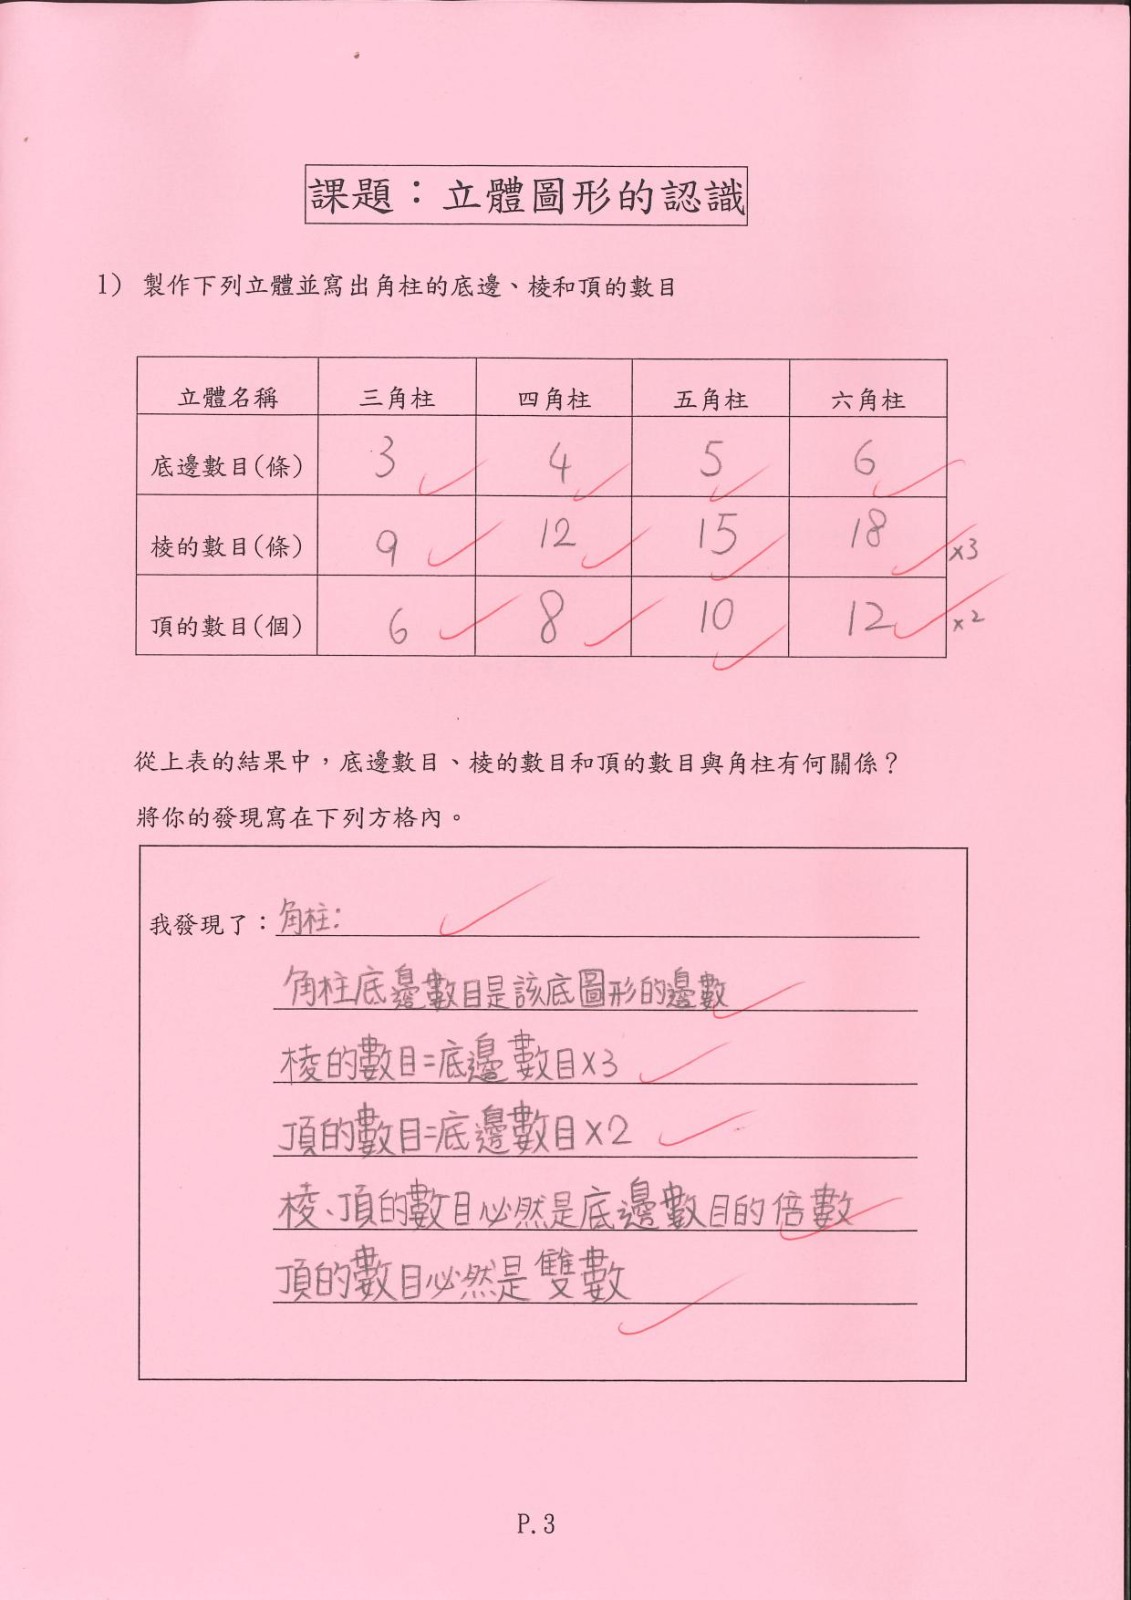 課題：立體圖形的認識
1) 製作下列立體並寫出角柱的底邊、棱和頂的數目
立體名稱 三角柱 四角柱 五角柱 六角柱
底邊數目(條) 3 4 5 6
棱的數目(條) 9 12 15 18 x3
頂的數目(個) 6 8 10 12 x2
從上表的結果中，底邊數目、棱的數目和頂的數目與角柱有何關係？
將你的發現寫在下列方格內。
我發現了：角柱:
角柱底邊數目是該底圖形的邊數
棱的數目=底邊數目x3
頂的數目=底邊數目x2
棱、頂的數目必然是底邊數目的倍數
頂的數目必然是雙數
P.3